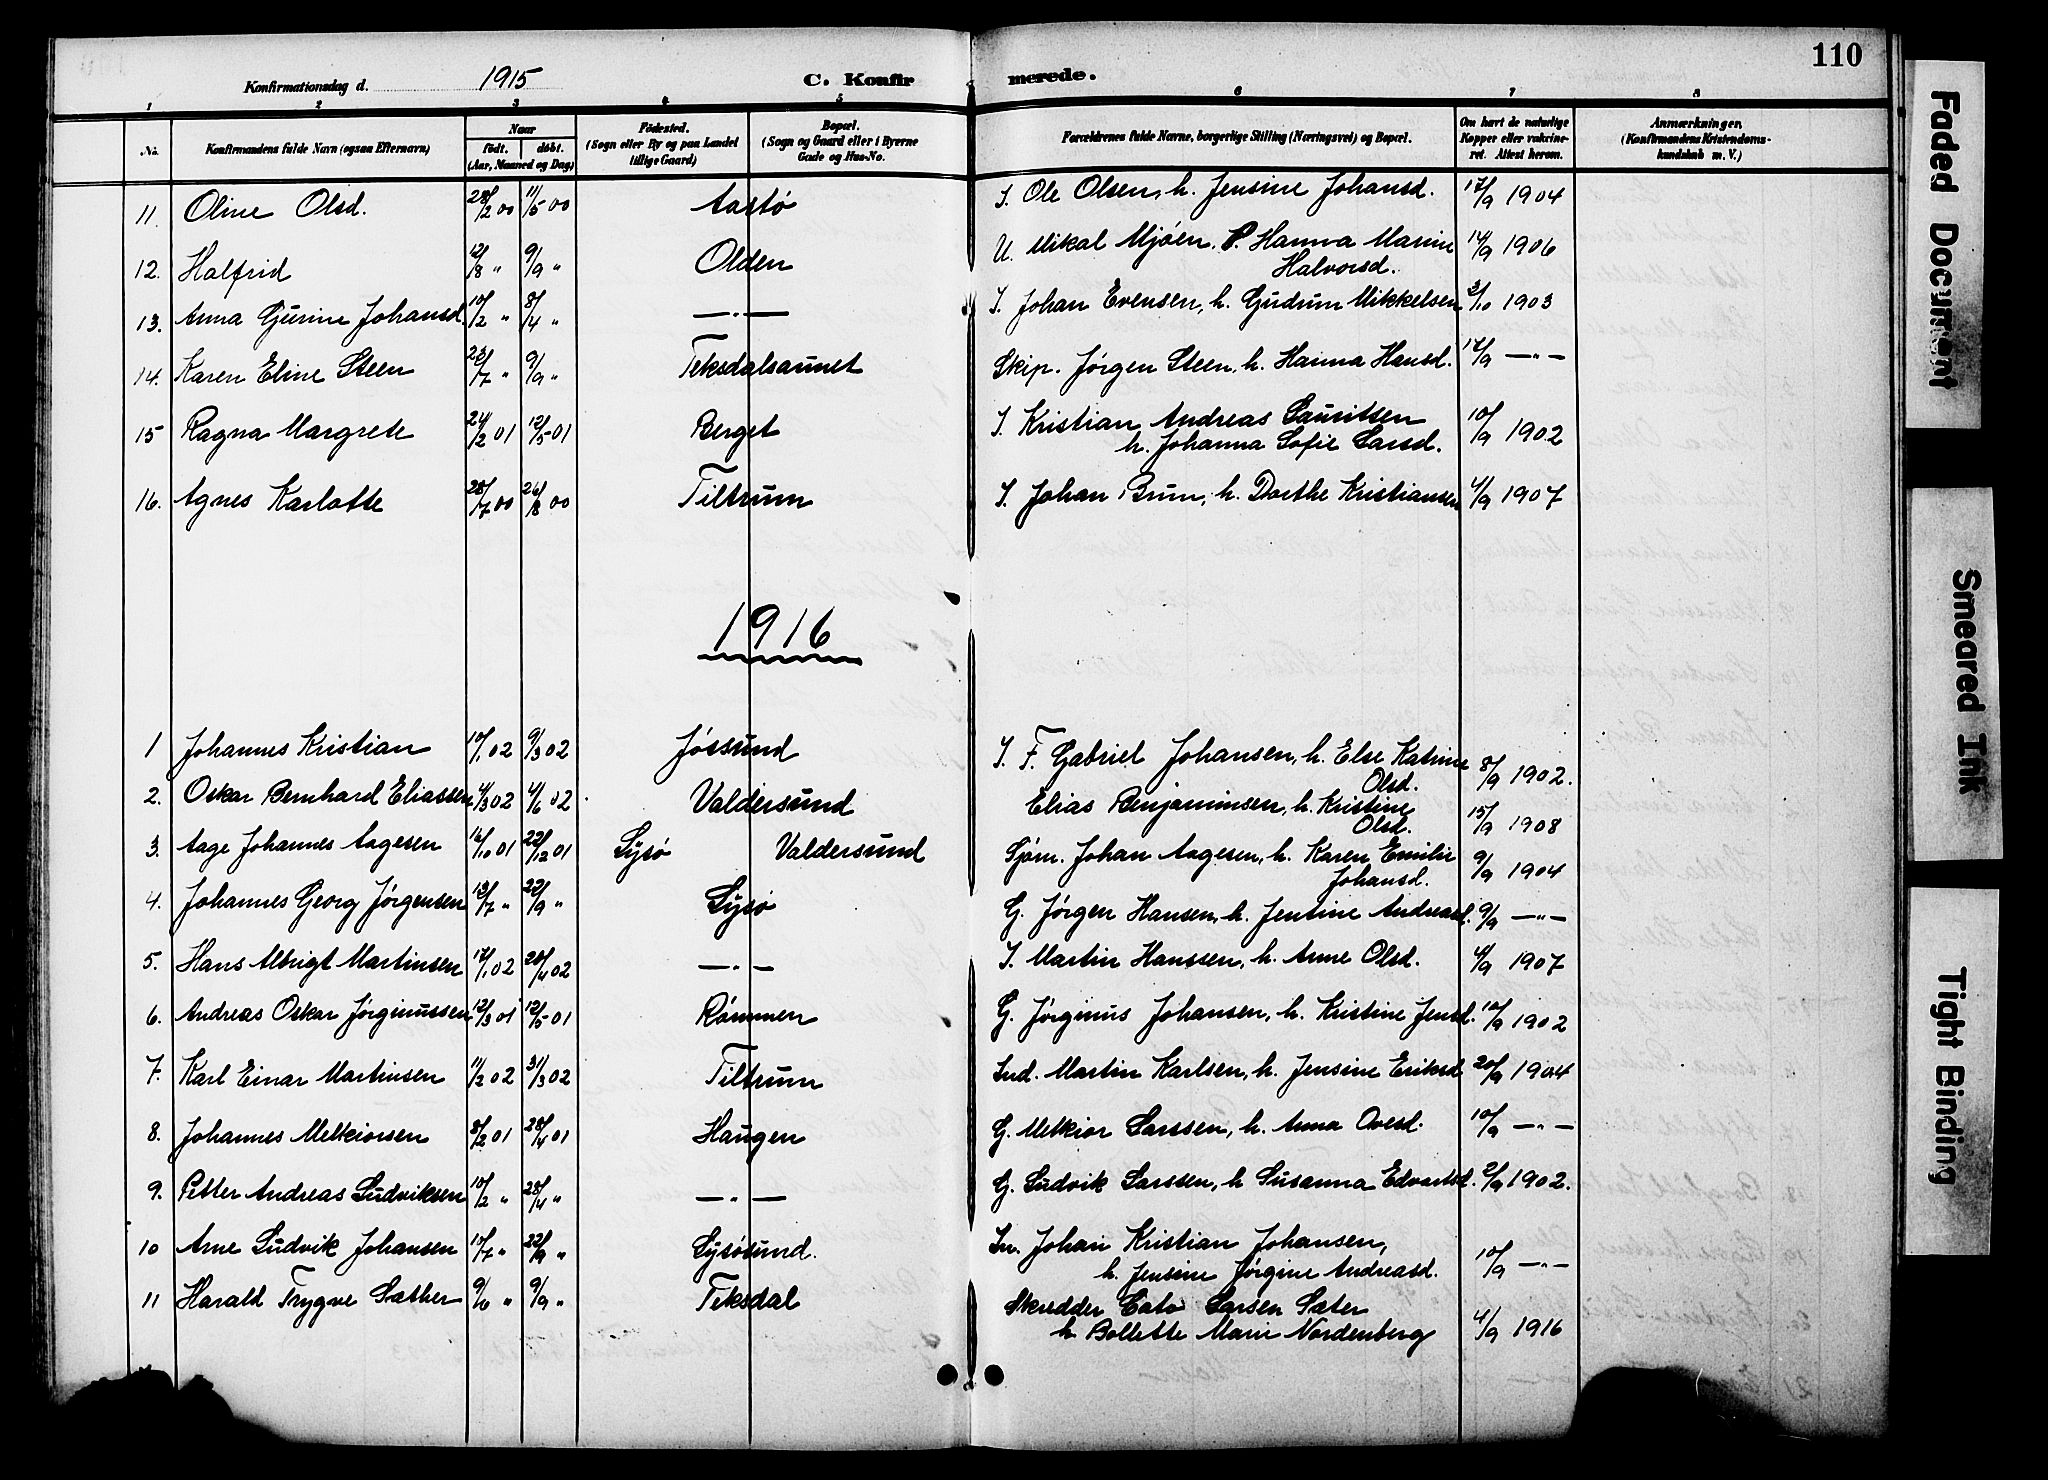 110
Konfirmationsdag d. 1915 C. Konfirmerede.
1 2 3 4 5 6 7 8
No. Konfirmandens fulde Navn (ogsaa Efternavn) Naar født. døbt. (Aar, Maaned og Dag) Fødested. (Sogn eller By og paa Landet tillige Gaard) Bopæl. (Sogn og Gaard eller i Byerne Gade og Hus-No. Forældrenes fulde Navne, borgerlige Stilling (Næringsvei) og Bopæl. Om havt de naturlige Kopper eller vakcineret. Attest herom. Anmærkninger. (Konfirmandens Kristendomskundskab m. V.)
11. Oline Olsd. 28/2 00 11/5 00 Aastø I. Ole Olsen, h. Jensine Johansd. 17/9 1904
12. Halfrid 12/8 " 9/9 " Olden U. Mikal Mjøen. P. Hanna Marie Halvorsd. 14/9 1906
13. Anna Gurine Johansd. 10/2 " 8/4 " —"— I. Johan Evensen, h. Gudrun Mikkelsen 3/10 1903
14. Karen Eline Steen 23/7 " 9/9 " Teksdalsaunet Skip. Jørgen Steen, h. Hanna Hansd. 17/9 —"—
15 Ragna Margrete 24/2 01 12/5 01 Berget I. Kristian Andreas Lauritsen
h. Johanna Sofie Larsd. 10/9 1902
16. Agnes Karlotte 28/7 00 26/8 00 Tiltrum I. Johan Brun, h. Dorthe Kristiansen 4/9 1907
1916
1 Johannes Kristian 10/1 02 9/3 02 Jøssund I. F. Gabriel Johansen, h. Else Katrine Olsd. 8/9 1902.
2. Oskar Bernhard Eliassen 4/3 02 4/6 02 Valdersund Elias Benjaminsen, h. Kristine Olsd. 15/9 1908
3. Aage Johannes Aagesen 16/10 01 22/12 01 Lysø Valdersund Sjøm. Johan Aagesen, h. Karen Emilie Johansd. 9/9 1904
4. Johannes Georg Jørgensen 13/7 " 22/9 " Lysø G. Jørgen Hansen, h. Jentine Andreasd. 9/9 —"—
5. Hans Albrigt Martinsen 17/1 02 20/4 02 —"— I. Martin Hanssen, h. Anne Olsd. 4/9 1907
6. Andreas Oskar Jørginussen 12/3 01 12/5 01 Rømmen G. Jørginus Johansen, h. Kristine Jensd. 10/9 1902
7. Karl Einar Martinsen 11/2 02 31/3 02 Tiltrum Ind. Martin Karlsen, h. Jensine Eriksd 20/9 1904
8. Johannes Melkiorsen 3/2 01 28/4 01 Haugen G. Melkior Larssen, h. Anna Ovesd. 10/9 —"—
9. Petter Andreas Ludviksen 10/2 " 28/4 " —"— G. Ludvik Larssen, h Susanna Edvartsd. 2/9 1902.
10 Arne Ludvik Johansen 10/7 " 22/9 " Lysøsund. In. Johan Kristian Johansen,
h. Jensine Jørgine Andreasd. 10/9 —"—
11 Harald Trygve Sæther 9/6 " 9/9 " Teksdal Skredder Cato Larsen Sæter
h. Bollette Marie Nordenberg 4/9 1916
Faded Document
Smeared Ink
Tight Binding